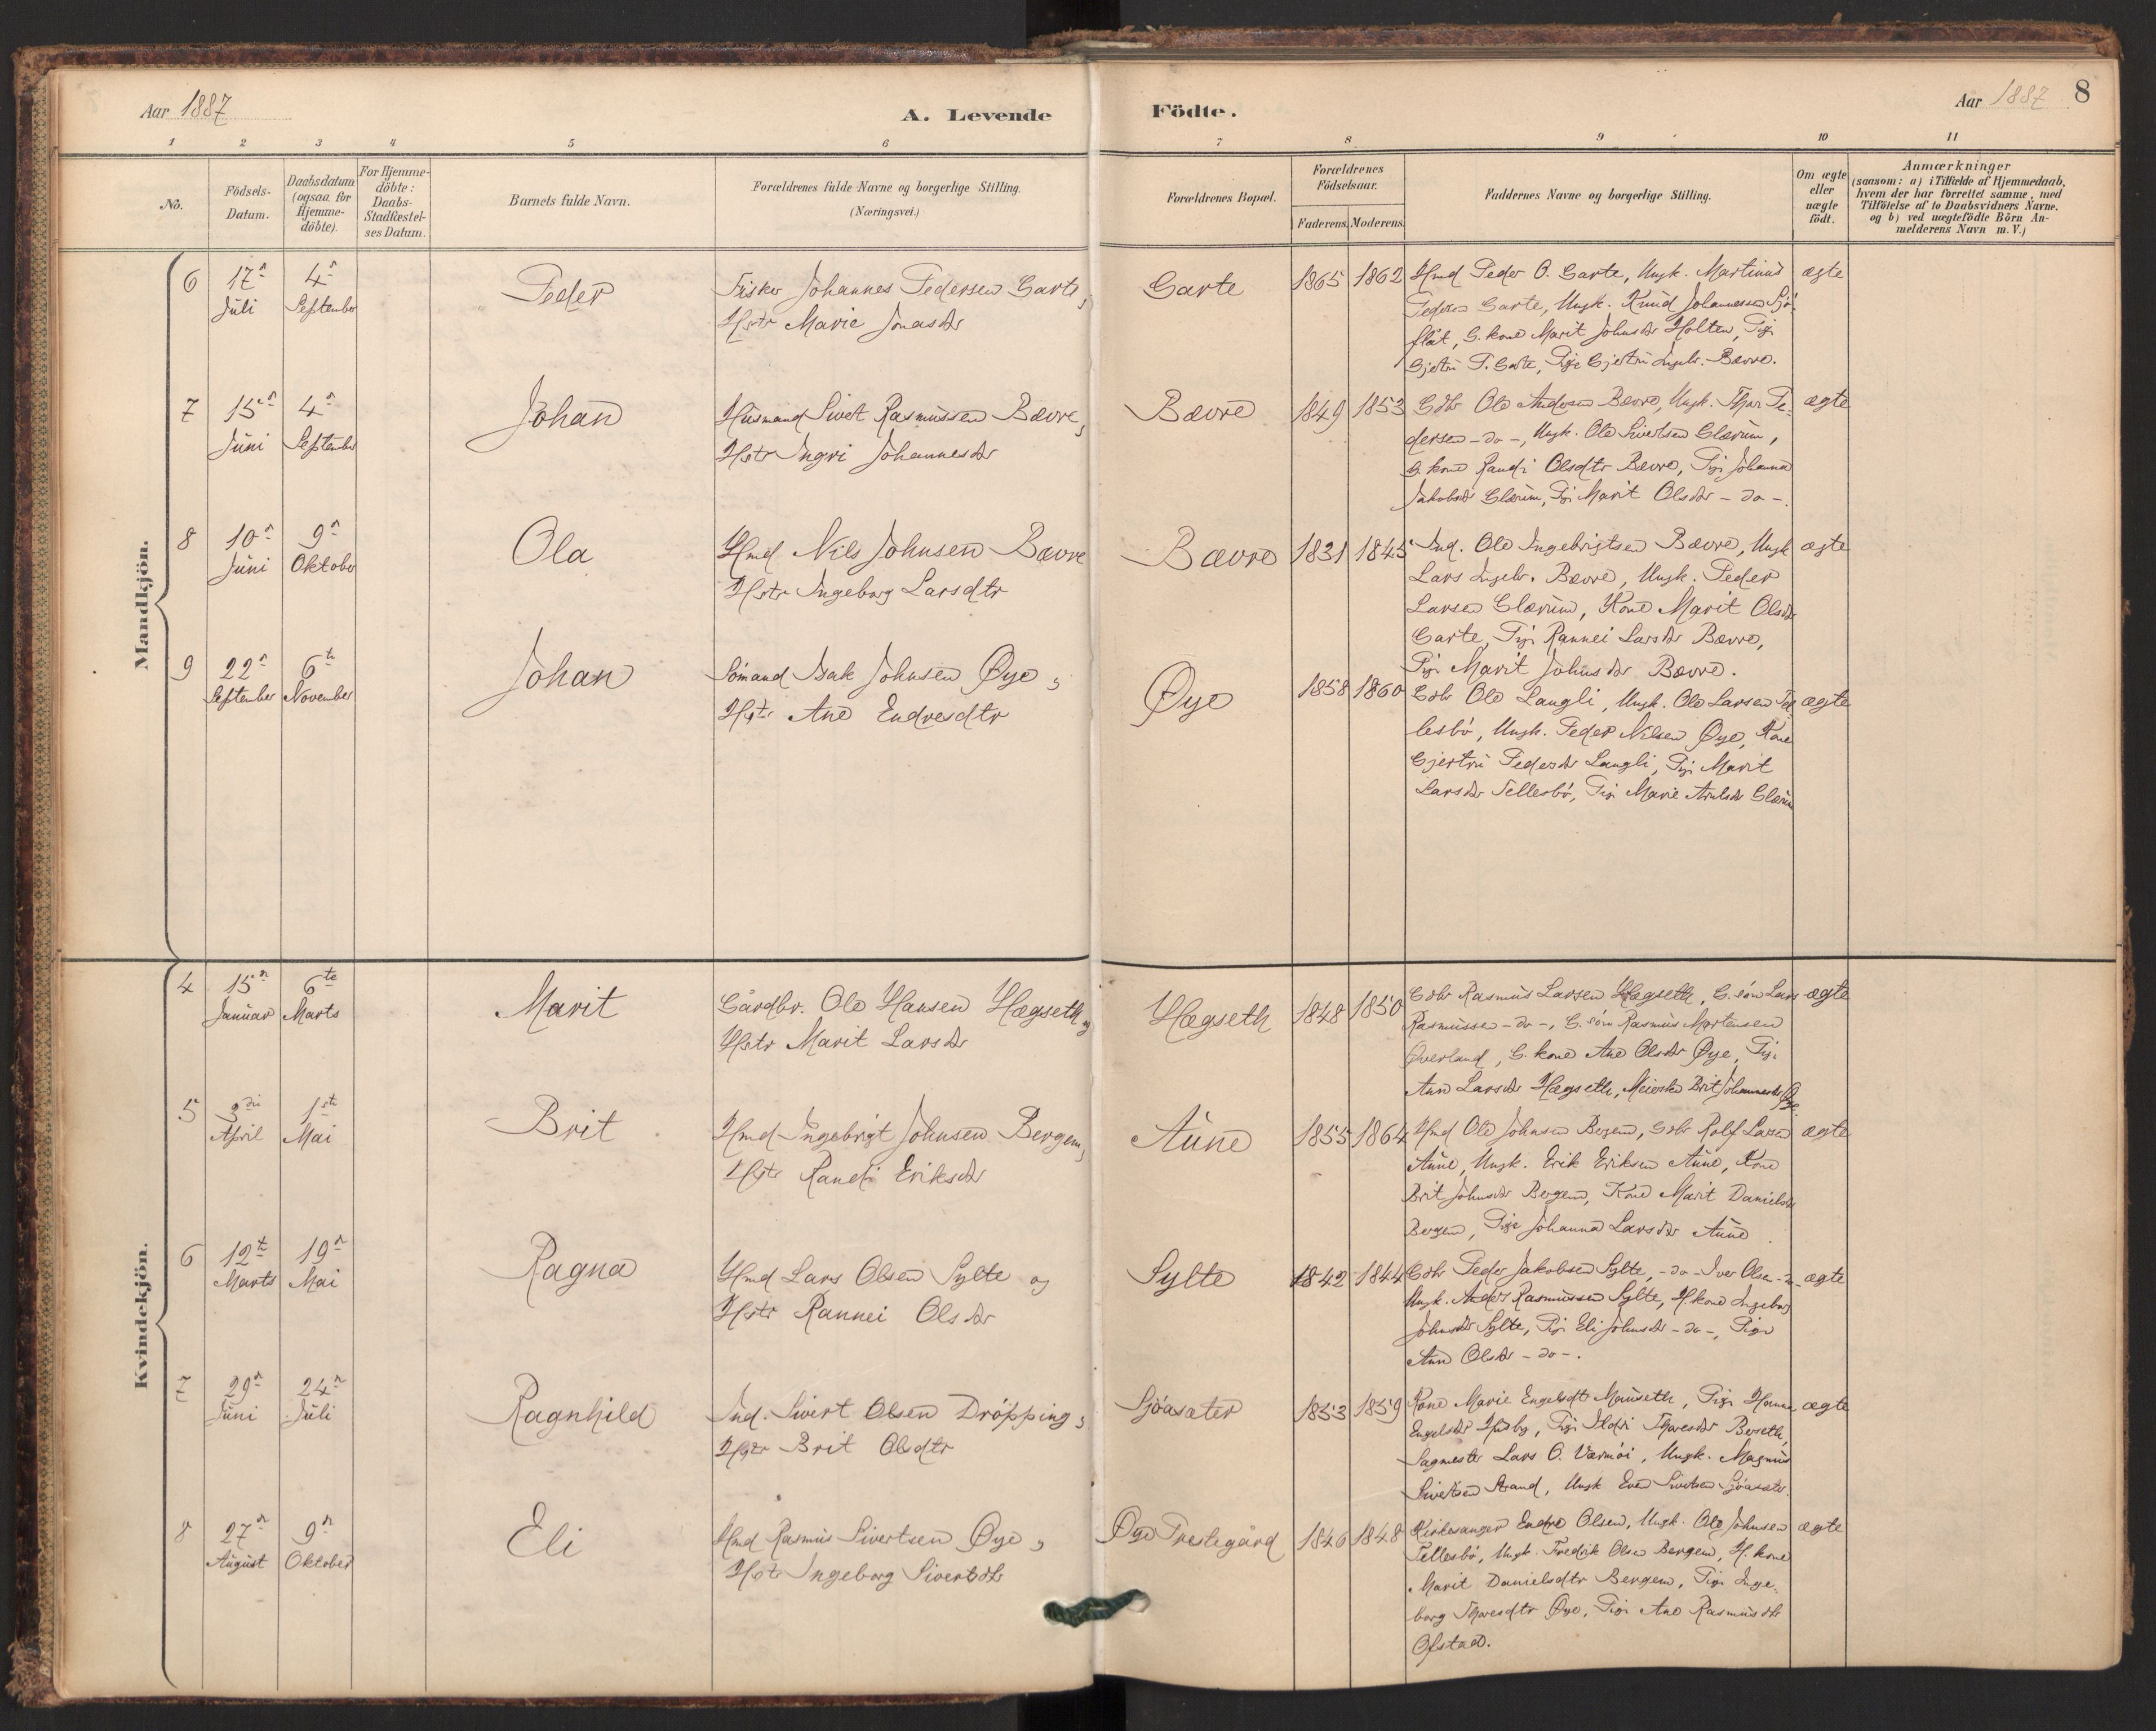 Aar 1887
A. Levende
Födte.
Aar 1887 8
1 2 3 4 5 6 7 8 9 10 11
No.
Födsels-
Datum.
Daabsdatum
(ogsaa for
Hjemme-
döbte).
For Hjemme-
döbte:
Daabs-
Stadfæstel-
ses Datum.
Barnets fulde Navn.
Forældrenes fulde Navne og borgerlige Stilling.
(Næringsvei.)
Forældrenes Bopæl.
Forældrenes
Födselsaar.
Faderens. Moderens.
Faddernes Navne og borgerlige Stilling.
Om ægte
eller
uægte
født.
Anmærkninger
(saasom: a) i Tilfælde af Hjemmedaab,
hvem der har forrettet samme, med
Tilföielse af to Daabsvidners Navne.
og b) ved uægtefödte Börn An-
melderens Navn m. V.)
Mandkjön.
6 17n Juli 4n September
Peder
Fisker Johannes Pedersen Garte,
Hstr Marie Jonasdtr
Garte
1865 1862
Hmd Peder O. Garte, Ungk. Martinus
Pedersen Garte, Ungk. Knud Johannessen Sjö-
flåt, G. kone Marit Johnsdtr Holten, Pige
Gjertru P. Garte, Pige Gjertru Ingebr. Bævre.
ægte
7 15n Juni 4n September
Johan
Husmand Sivert Rasmussen Bævre,
Hstr Ingri Johannesdtr
Bævre
1849 1853
Gdbr Ole Andersen Bævre, Ungk. Thor Pe-
dersen -do-, Ungk. Ole Sivertsen Glærum,
G. kone Randi Olsdtr Bævre, Pige Johanna
Jakobsdtr Glærum, Pige Marit Olsdtr -do-.
ægte
8 10n Juni 9n Oktober
Ola
Hmd Nils Johnsen Bævre
Hstr Ingeborg Larsdtr
Bævre
1831 1845
Ind. Ole Ingebrigtsen Bævre, Ungk
Lars Ingebr. Bævre, Ungk. Peder
Larsen Glærum, Kone Marit Olsdtr
Garte, Pige Rannei Larsdtr Bævre,
Pige Marit Johnsdtr Bævre.
ægte
9 22n September 6te November
Johan
Sömand Isak Johnsen Øye,
Hstr Ane Endresdtr
Øye
1858 1860
Gdbr Ole Langli, Ungk. Ole Larsen Tel-
lesbö, Ungk. Peder Nilsen Øye, Kone
Gjertru Pedersdtr Langli, Pige Marit
Larsdtr Tellesbö, Pige Marie Glærum
ægte
Kvindekjön.
4 15n Januar 6te Marts
Marit
Gårdbr. Ole Hansen Hægseth og
Hstr Marit Larsdtr
Hægseth
1848 1850
Gdbr Rasmus Larsen Hægseth, G. sön Lars
Rasmussen -do-, G. sön Rasmus Mortensen
Øverland, G. kone Ane Olsdtr Øye, Pige
Ane Larsdtr Hægseth, Meierske Brit Johannesdtr Øye.
ægte
5 3die April 1ste Mai
Brit
Hmd Ingebrigt Johnsen Bergem,
Hstr Randi Eriksdtr
Aune
1855 1864
Hmd Ole Johnsen Bergem, Gdbr Rolf Larsen
Aune, Ungk. Erik Eriksen Aune, Kone
Brit Johnsdtr Bergem, Kone Marit Danielsdtr
Bergem, Pige Johanna Larsdtr Aune.
ægte
6 12te Marts 19n Mai
Ragna
Hmd Lars Olsen Sylte og
Hstr Rannei Olsdtr
Sylte
1842 1844
Gdbr Peder Jakobsen Sylte, -do- Iver Olsen -do-
Ungk. Anders Rasmussen Sylte, H. kone Ingeborg
Johnsdtr Sylte, Pige Eli Johnsdtr -do-, Pige
Ane Olsdtr -do-.
ægte
7 29n Juni 24n Juli
Ragnhild
Ind. Sivert Olsen Dröpping,
Hstr Brit Olsdtr
Sjöasæter
1853 1859
Kone Marie Engelsdtr Mauseth, Pige Hanna
Engelsdtr Husby, Pige Ildri Thoresdtr Berseth,
Sagmester Lars O. Værmöi, Ungk. Magnus
Sivertsen Strand, Ungk Even Sivertsen Sjöasæter.
ægte
8 27n August 9n Oktober
Eli
Hmd Rasmus Sivertsen Øye,
Hstr Ingeborg Sivertsdtr
Øye Prestegård
1846 1848
Kirkesanger Endre Olsen, Ungk. Ole Johnsen
Tellesbö, Ungk. Fredrik Olsen Bergem, H. kone
Marit Danielsdtr Bergem, Pige Inge-
borg Thoresdtr Øye, Pige Ane Rasmusdtr
Ofstad.
ægte